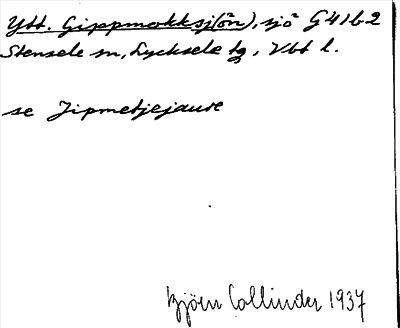 Ytt. Gippmokksj(ön), sjö G41b2
Stensele sn, Lycksele tg, Vbt l.
se Jipmetjejaure
Björn Collinder 1937